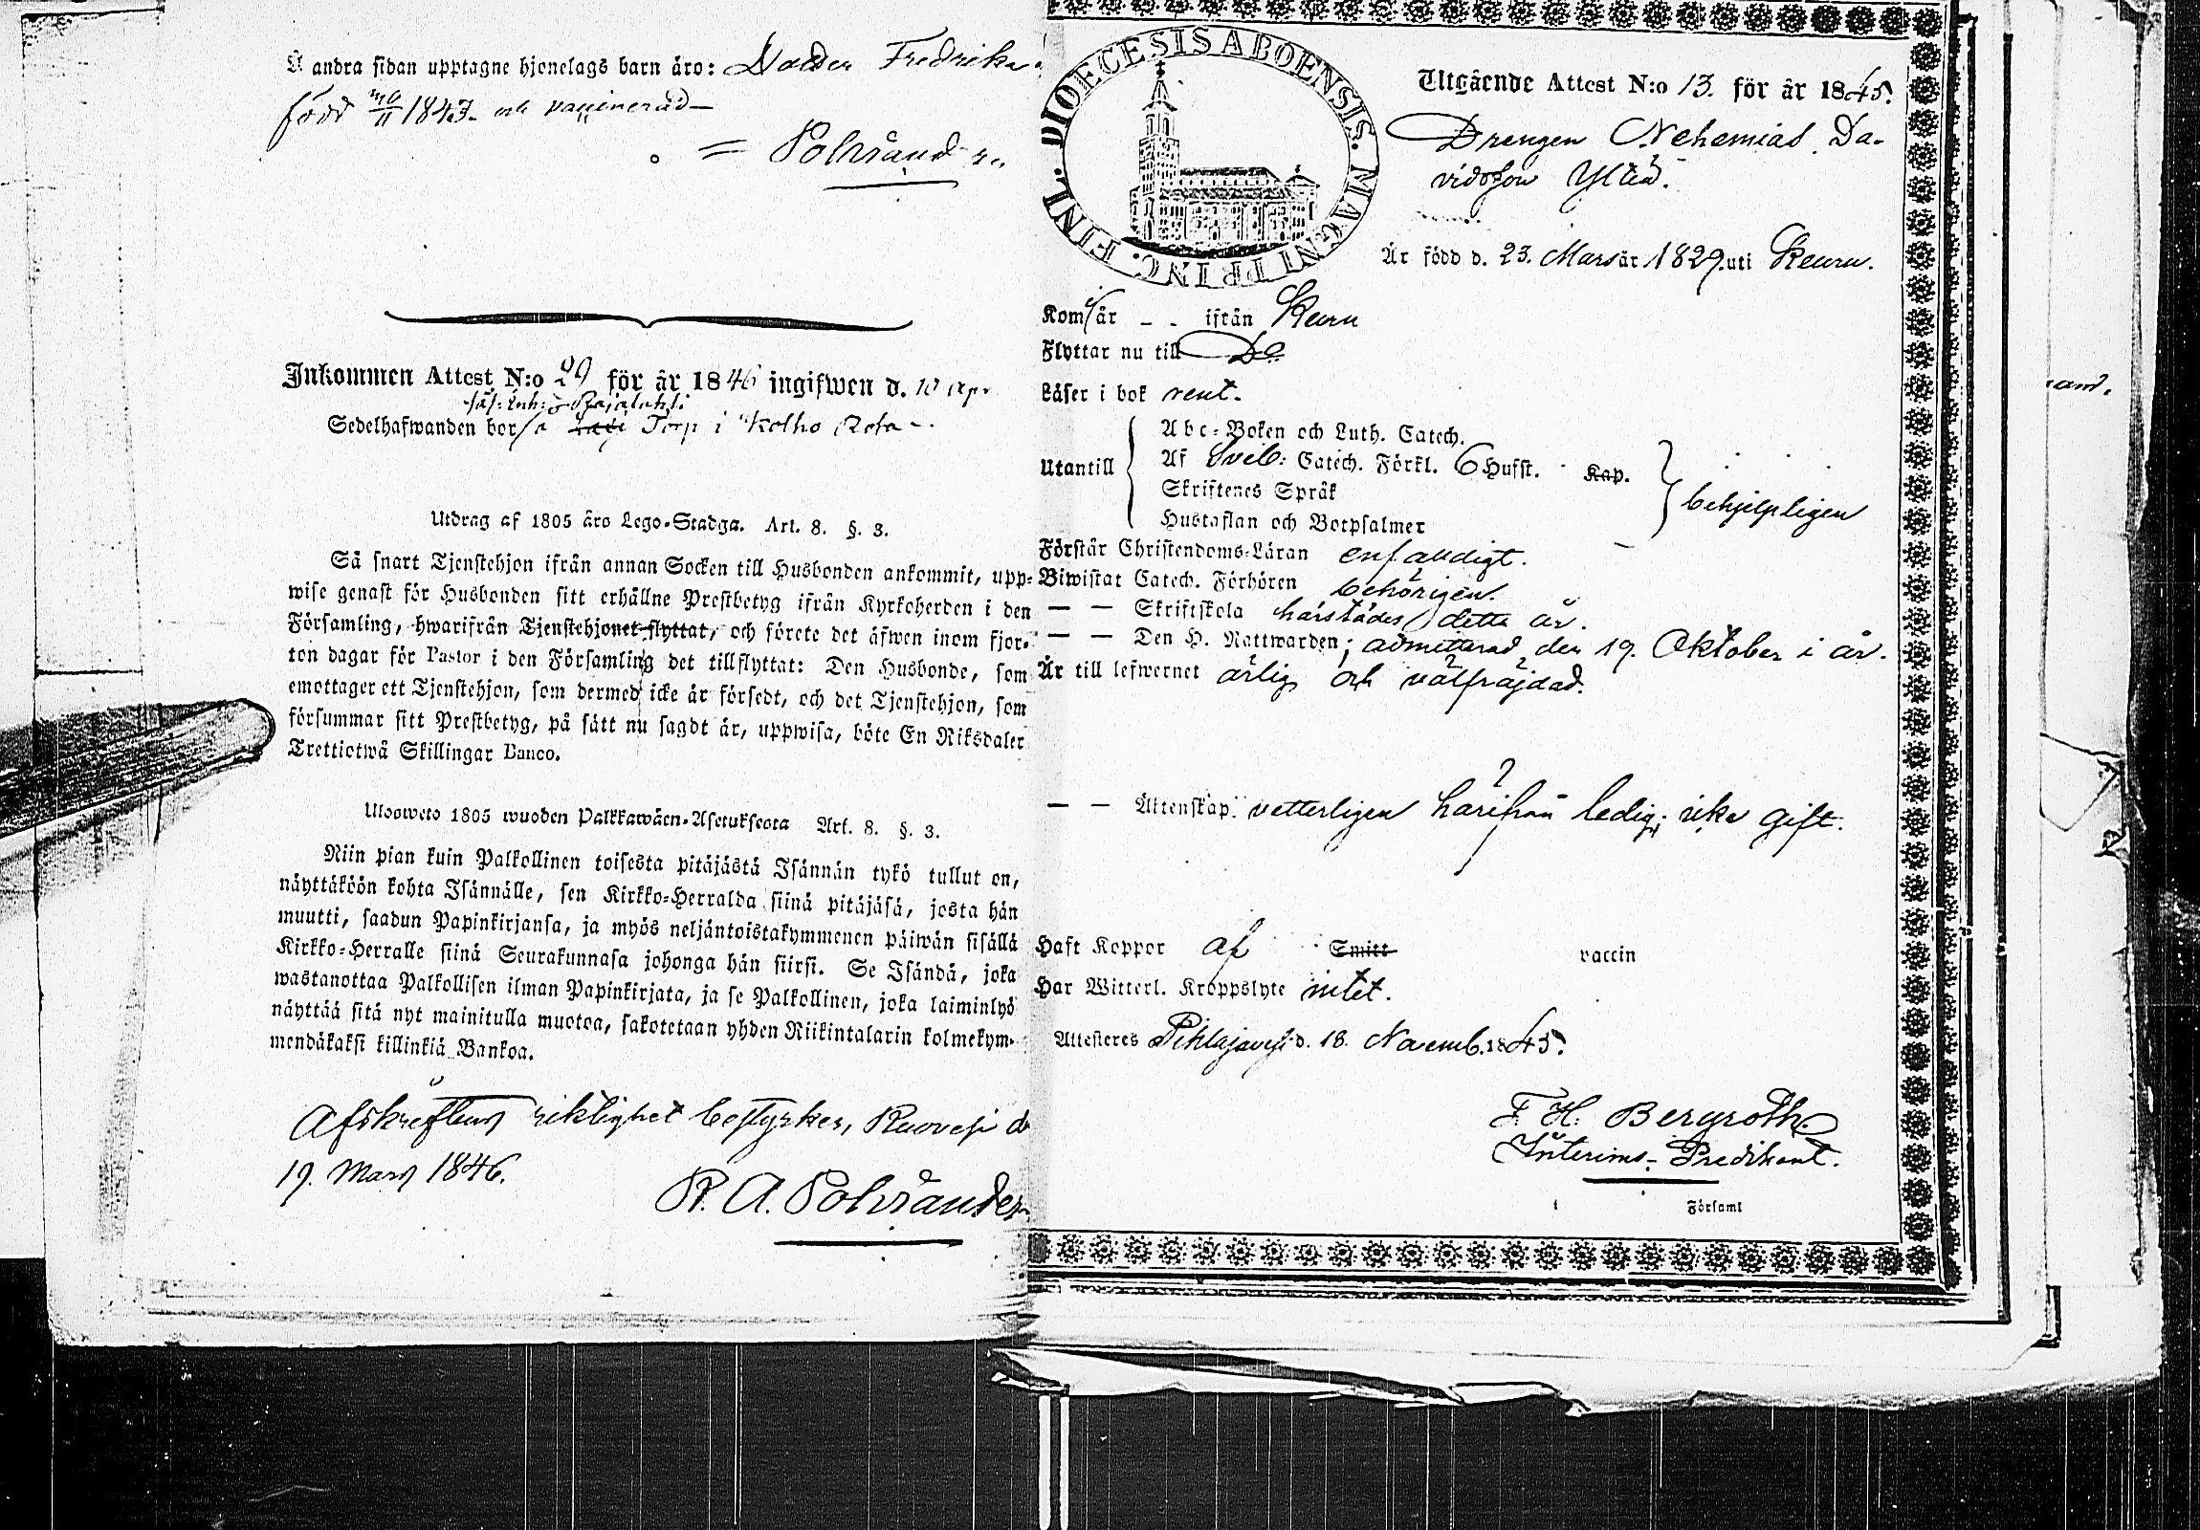 Å andra sidan upptagne hjonelags barn äro: Dotder Fredrika
född 1843 och vaccinerad
Polvianد
Inkommen Attest N:o 29 för år 1846 ingifwen d. 10 Apr
Sedelhafwanden bor Torp i Kolho Rota
Utdrag af 1805 åro Lego-Stadga. Art. 8. §. 3.
Så snart Tjenstehjon ifrån annan Socken till Husbonden ankommit, upp-
wise genast för Husbonden sitt erhållne Prestbetyg ifrån Kyrkoherden i den
Församling, hwarifrån Tjenstehjonet flyttat, och förete det äfwen inom fjor-
ton dagar för Pastor i den Församling det tillflyttat: Den Husbonde, som
emottager ett Tjenstehjon, som dermed icke är försedt, och det Tjenstehjon, som
försummar sitt Prestbetyg, på sätt nu sagdt är, uppwisa, böte En Riksdaler
Trettiotwå Skillingar Banco.
Ulosweto 1805 wuoden Palkkawäen-Asetuksesta Art. 8. §. 3.
Niin pian kuin Palkollinen toisesta pitäjästä Isännän tykö tullut on,
näyttäköön kohta Isännälle, sen Kirkko-Herralda siinä pitäjäsä, josta hän
muutti, saadun Papinkirjansa, ja myös neljäntoistakymmenen päiwän sisällä
Kirkko-Herralle siinä Seurakunnasa johonga hän siirsi. Se Isändä, joka
wastanottaa Palkollisen ilman Papinkirjata, ja se Palkollinen, joka laiminlyö
näyttää sitä nyt mainitulla muotoa, sakotetaan yhden Riikintalarin kolmekym-
mendäkaksi killinkiä Bankoa.
Afskriftens riktighet bestyrker, Ruovesi d
19. Mars 1846.
R. A. Polviander
DIOECESIS ABOENSIS. MAGNI PRINC. FINL.
Utgående Attest N:o 13. för år 1845.
Drengen Nehemias Da-
vidsson
Är född d. 23. Mars år 1829. uti Keuru.
Kom år - - ifrån Keuru
Flyttar nu till Do
Läser i bok rent.
Utantill
Abc-Boken och Luth. Catech.
Af Sveb: Catech. Förkl. 6 Hufst. Kap.
Skriftenes Språk
Hustaflan och Botpsalmer
behjelpligen
Förstår Christendoms-Läran enfaldigt.
Biwistat Catech. Förhören behörigen.
— — Skriftskola härstädes detta år.
— — Den H. Nattwarden; admitterad den 19. Oktober i år.
Är till lefwernet ärlig och välfräjdad.
— — Äktenskap. vetterligen härifrån ledig; icke gift.
Haft Koppor af Smitt vaccin
Har Witterl. Kroppslyte intet.
Attesteras Pihlajavesi d. 18. Novemb. 1845.
F. H. Bergroth
Interims-Predikant.
Församl